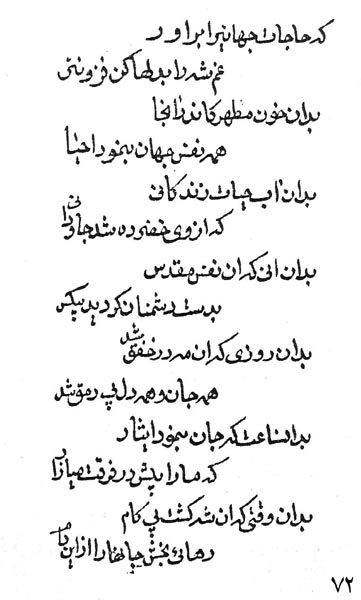 که حاجات جهانیرا براور
غم شه را بدلها کن فزونتر
بدان خون مطهر کاندر انجا
همه نفس جهان بنمود احیا
بدان اب حیات زندکانی
که ازوی خضر زده شد جاودانی
بدان انی که ان نفس مقدس
بدست دشمنان کردید بیکس
بدان روزی که ان مه در خفق شد
همه جان و همه دل بی رمق شد
بدانساعت که جان بنمود ایثار
که ما را بیش در فرقت میازار
بدان وقتی که ان شه کشت بی کام
رهائی بخش جانها را از این دام
۷۲